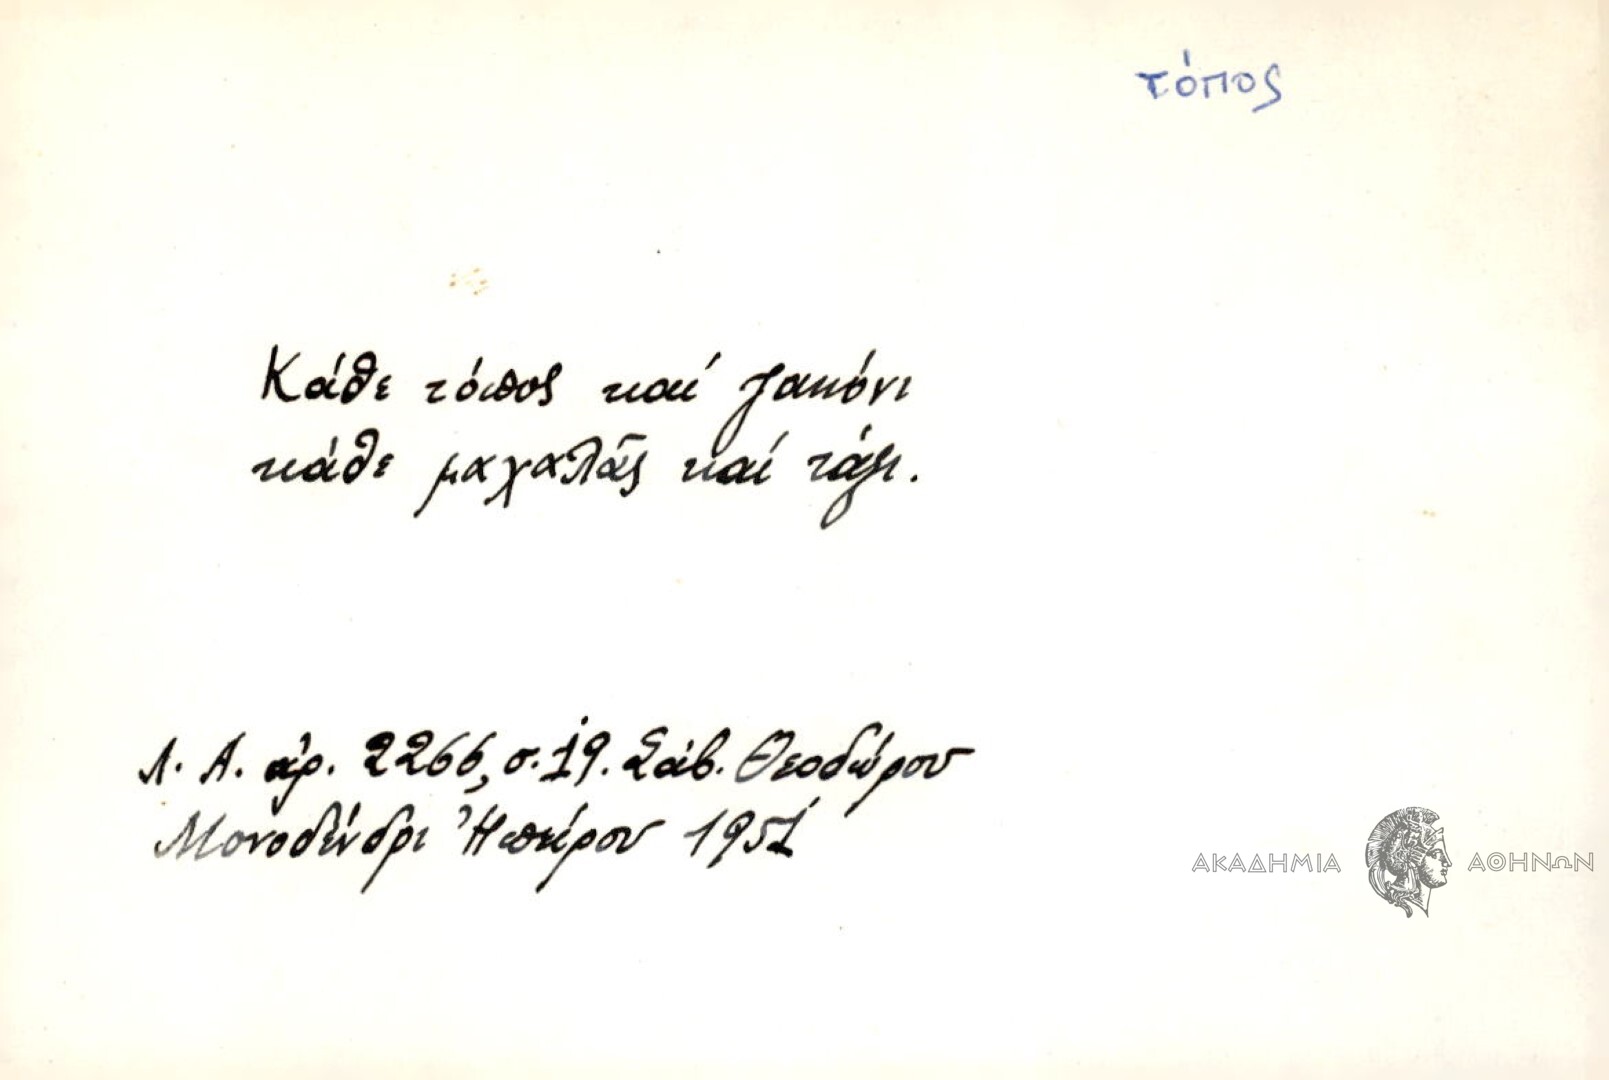 τόπος
Κάθε τόπος καί ζακόνι
κάθε μαχαλᾶς καί τάξι.
Λ. Α. ἀρ. 2266, σ. 19. Σάβ. Θεοδώρου
Μονοδένδρι Ἠπείρου 1951
ΑΚΑΔΗΜΙΑ ΑΘΗΝΩΝ